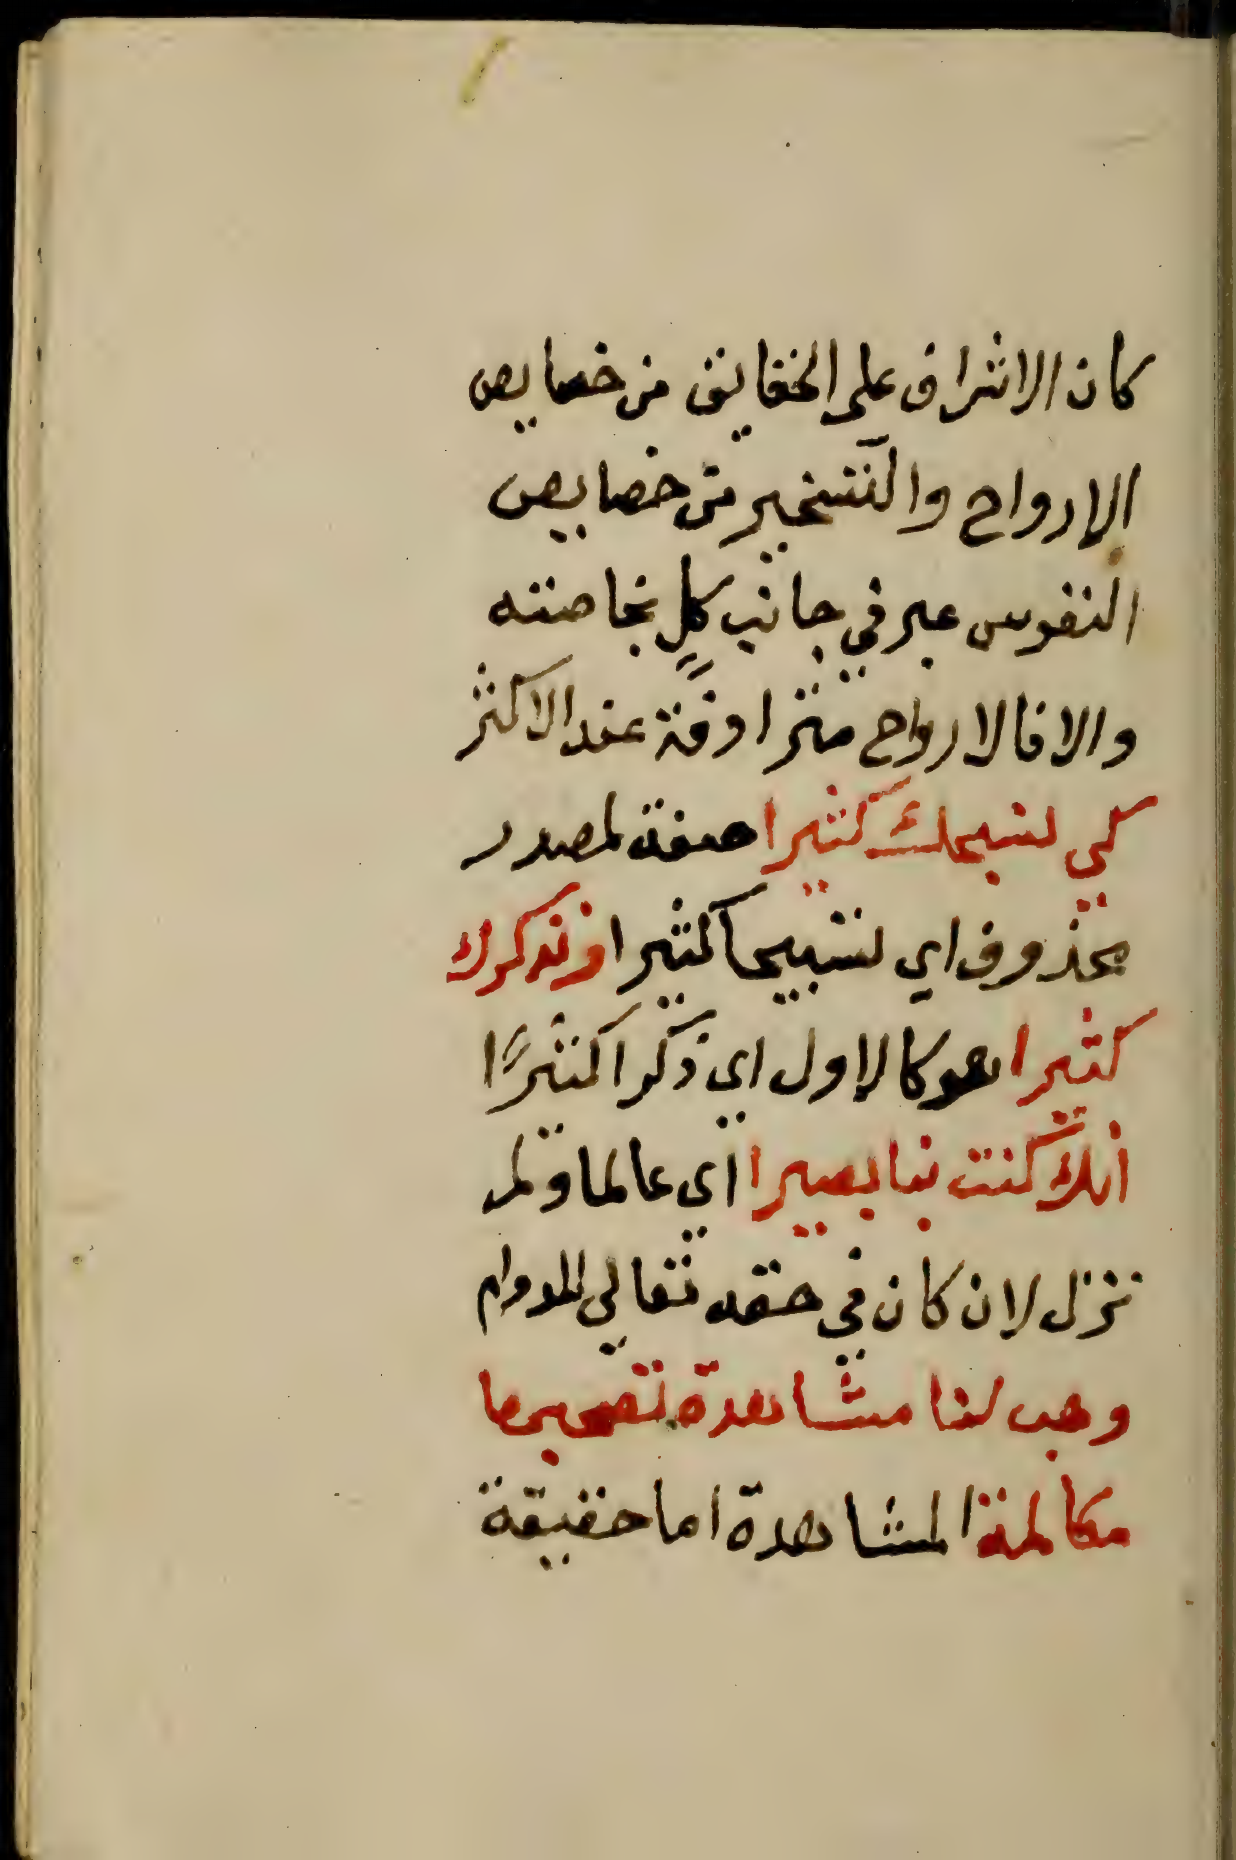 كان الاشراق على الحقايق من خصايص
الارواح والتسخير من خصايص
النفوس عبر في جانب كلٍ بخاصته
والا فالارواح مترادفة عند الاكثر
كي نسبحك كثيرا صفة لمصدر
محذوف اي تسبيحا كثيرا ونذكرك
كثيرا هو كالاول اي ذكرا كثيرًا
انك كنت بنا بصيرا اي عالما ولم
تزل لان كان في حقه تعالى للدوام
وهب لنا مشاهدة تصحبها
مكالمة المشاهدة اما حقيقة